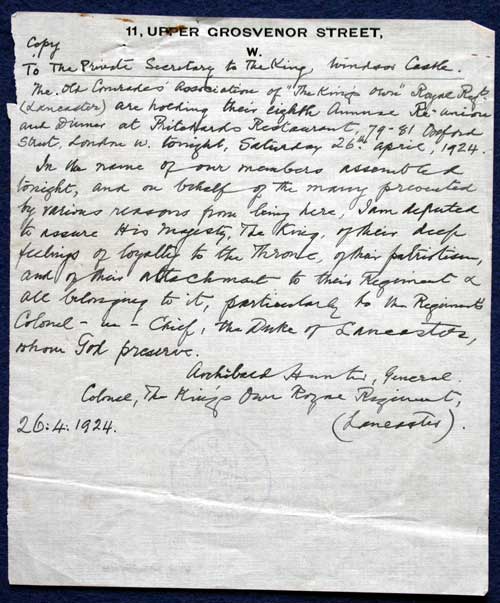 11, UPPER GROSVENOR STREET,
W.
Copy
To The Private Secretary to The King, Windsor Castle.
The Old Comrades' Association of "The King's Own" Royal Regt.
(Lancaster) are holding their eighth Annual Re-union
and Dinner at Pritchards Restaurant, 79-81 Oxford
Street, London W. tonight, Saturday 26th April, 1924.
In the name of our members assembled
tonight, and on behalf of the many prevented
by various reasons from being here, I am deputed
to assure His Majesty, The King, of their deep
feelings of loyalty to the Throne, of their patriotism,
and of their attachment to their Regiment &
all belonging to it, particularly to the Regiment's
Colonel-in-Chief, the Duke of Lancaster,
whom God preserve.
Archibald Hunter, General.
Colonel, The King's Own Royal Regiment,
26.4.1924.
(Lancaster).